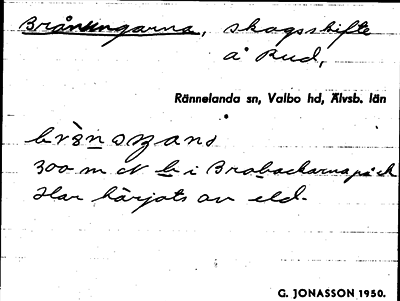 Bråningarna, skogsskifte
å Rud,
Rännelanda sn, Valbo hd, Älvsb. län
300 m N b i Brobackarna på ek
Har härjats av eld.
G. JONASSON 1950.